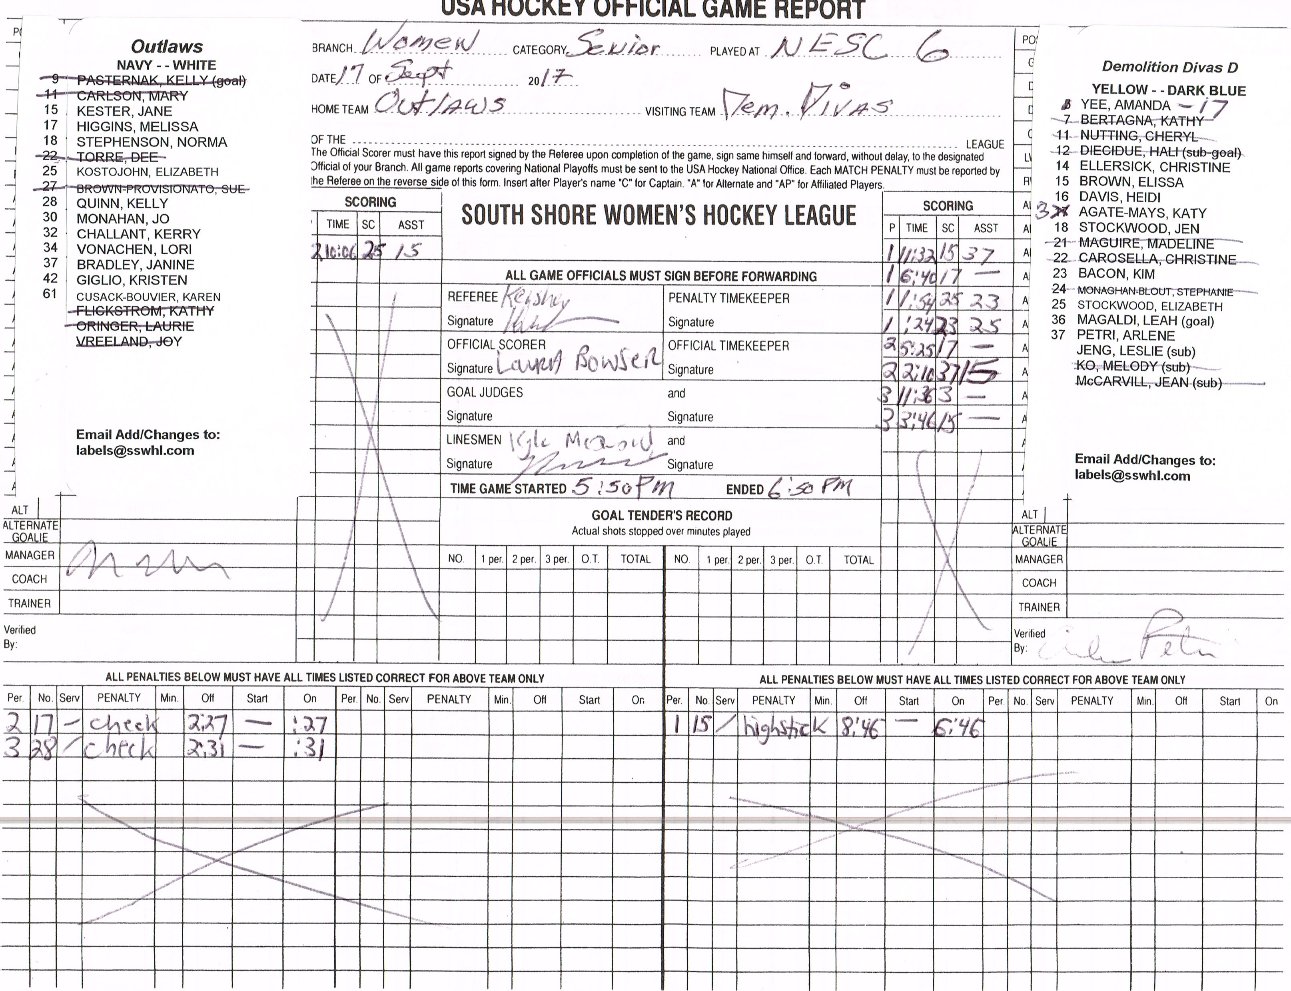 USA HOCKEY OFFICIAL GAME REPORT
Outlaws
NAVY - - WHITE
9 PASTERNAK, KELLY (goal)
11 CARLSON, MARY
15 KESTER, JANE
17 HIGGINS, MELISSA
18 STEPHENSON, NORMA
22 TORRE, DEE
25 KOSTOJOHN, ELIZABETH
27 BROWN-PROVISIONATO, SUE
28 QUINN, KELLY
30 MONAHAN, JO
32 CHALLANT, KERRY
34 VONACHEN, LORI
37 BRADLEY, JANINE
42 GIGLIO, KRISTEN
61 CUSACK-BOUVIER, KAREN
FLICKSTROM, KATHY
ORINGER, LAURIE
VREELAND, JOY
Email Add/Changes to:
labels@sswhl.com
ALT
ALTERNATE GOALIE
MANAGER
COACH
TRAINER
Verified By:
BRANCH Women CATEGORY Senior PLAYED AT NESC 6
DATE 17 OF Sept 2017
HOME TEAM Outlaws VISITING TEAM Dem. Divas
OF THE LEAGUE
The Official Scorer must have this report signed by the Referee upon completion of the game, sign same himself and forward, without delay, to the designated
Official of your Branch. All game reports covering National Playoffs must be sent to the USA Hockey National Office. Each MATCH PENALTY must be reported by
the Referee on the reverse side of this form. Insert after Player's name "C" for Captain. "A" for Alternate and "AP" for Affiliated Players.
SCORING
TIME SC ASST
2 10:06 25 15
SOUTH SHORE WOMEN'S HOCKEY LEAGUE
ALL GAME OFFICIALS MUST SIGN BEFORE FORWARDING
REFEREE PENALTY TIMEKEEPER
Signature Signature
OFFICIAL SCORER OFFICIAL TIMEKEEPER
Signature Laura Bowser Signature
GOAL JUDGES and
Signature Signature
LINESMEN Kyle and
Signature Signature
TIME GAME STARTED 5:50 PM ENDED 6:50 PM
GOAL TENDER'S RECORD
Actual shots stopped over minutes played
NO. 1 per. 2 per. 3 per. O.T. TOTAL NO. 1 per. 2 per. 3 per. O.T. TOTAL
SCORING
P TIME SC ASST
1 11:32 15 37
1 6:40 17 —
1 1:54 25 23
1 :24 23 25
2 5:25 17 —
2 2:10 37 15
3 11:36 3 —
3 3:46 15 —
Demolition Divas D
YELLOW - - DARK BLUE
YEE, AMANDA - 17
7 BERTAGNA, KATHY
11 NUTTING, CHERYL
12 DIEGIDUE, HALI (sub-goal)
14 ELLERSICK, CHRISTINE
15 BROWN, ELISSA
16 DAVIS, HEIDI
3 AGATE-MAYS, KATY
18 STOCKWOOD, JEN
21 MAGUIRE, MADELINE
22 CAROSELLA, CHRISTINE
23 BACON, KIM
24 MONAGHAN-BLOUT, STEPHANIE
25 STOCKWOOD, ELIZABETH
36 MAGALDI, LEAH (goal)
37 PETRI, ARLENE
JENG, LESLIE (sub)
KO, MELODY (sub)
McCARVILL, JEAN (sub)
Email Add/Changes to:
labels@sswhl.com
ALT
ALTERNATE GOALIE
MANAGER
COACH
TRAINER
Verified By: Petri
ALL PENALTIES BELOW MUST HAVE ALL TIMES LISTED CORRECT FOR ABOVE TEAM ONLY
Per. No. Serv PENALTY Min. Off Start On Per. No. Serv PENALTY Min. Off Start On
2 17 - check 2:27 — :27
3 28 / check 2:31 — :31
ALL PENALTIES BELOW MUST HAVE ALL TIMES LISTED CORRECT FOR ABOVE TEAM ONLY
Per. No Serv PENALTY Min. Off Start On Per No. Serv PENALTY Min. Off Start On
1 15 / highstick 8:46 — 6:46